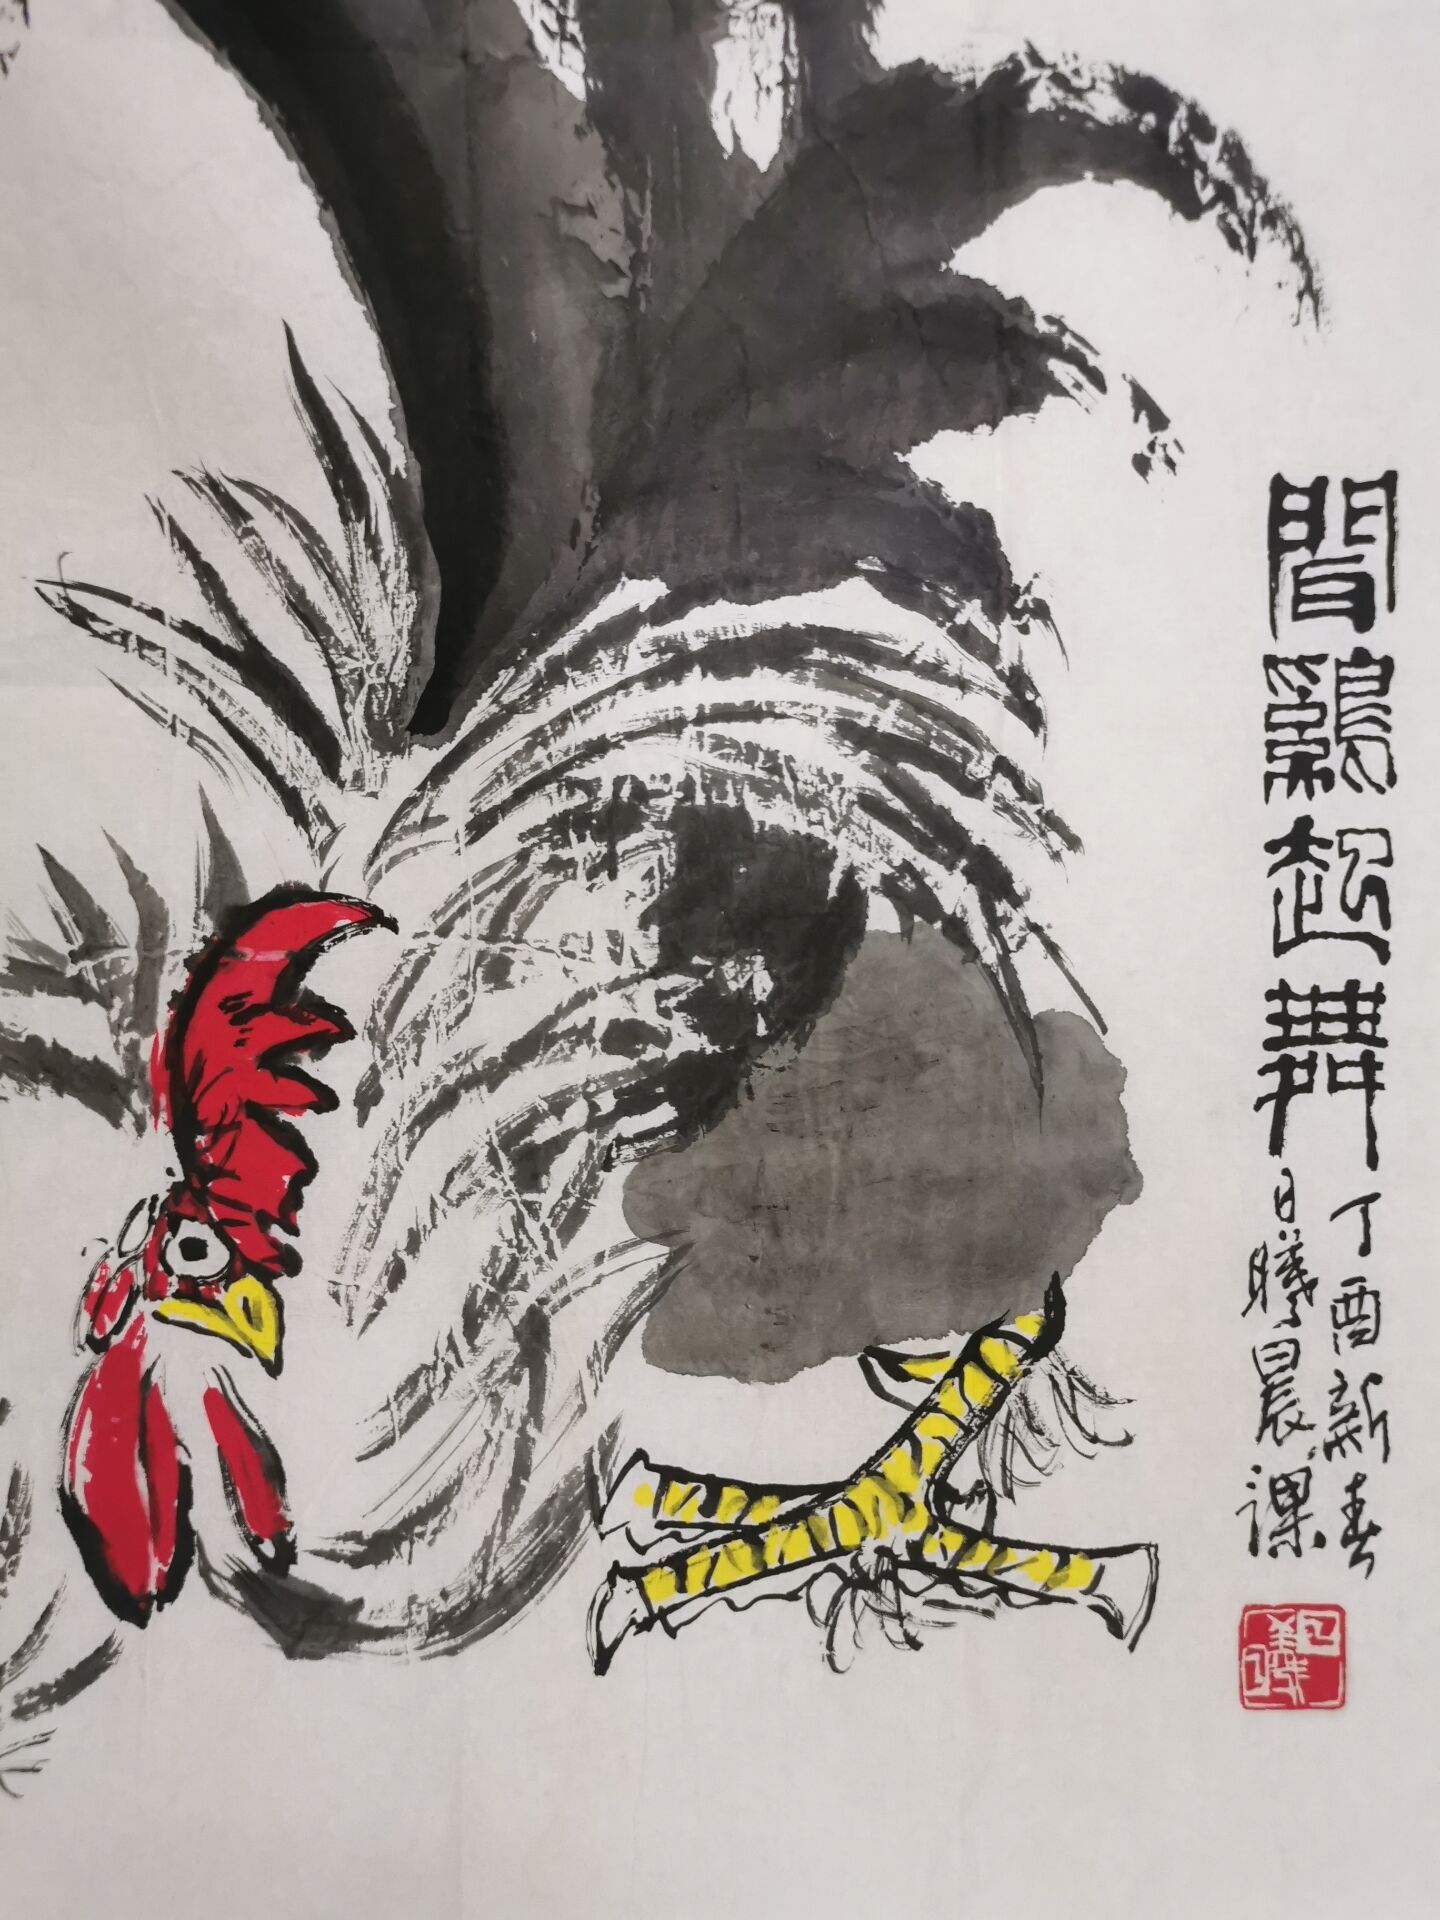 聞鷄起舞
丁酉新春
日曦晨課